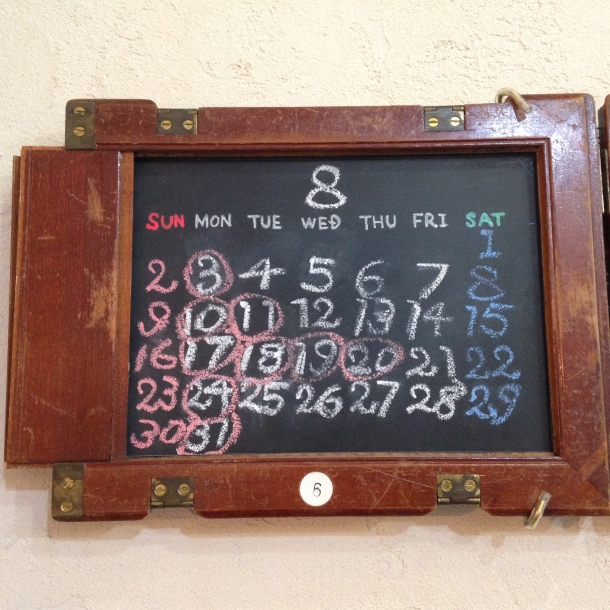 8
SUN MON TUE WED THU FRI SAT
1
2 3 4 5 6 7 8
9 10 11 12 13 14 15
16 17 18 19 20 21 22
23 24 25 26 27 28 29
30 31
6